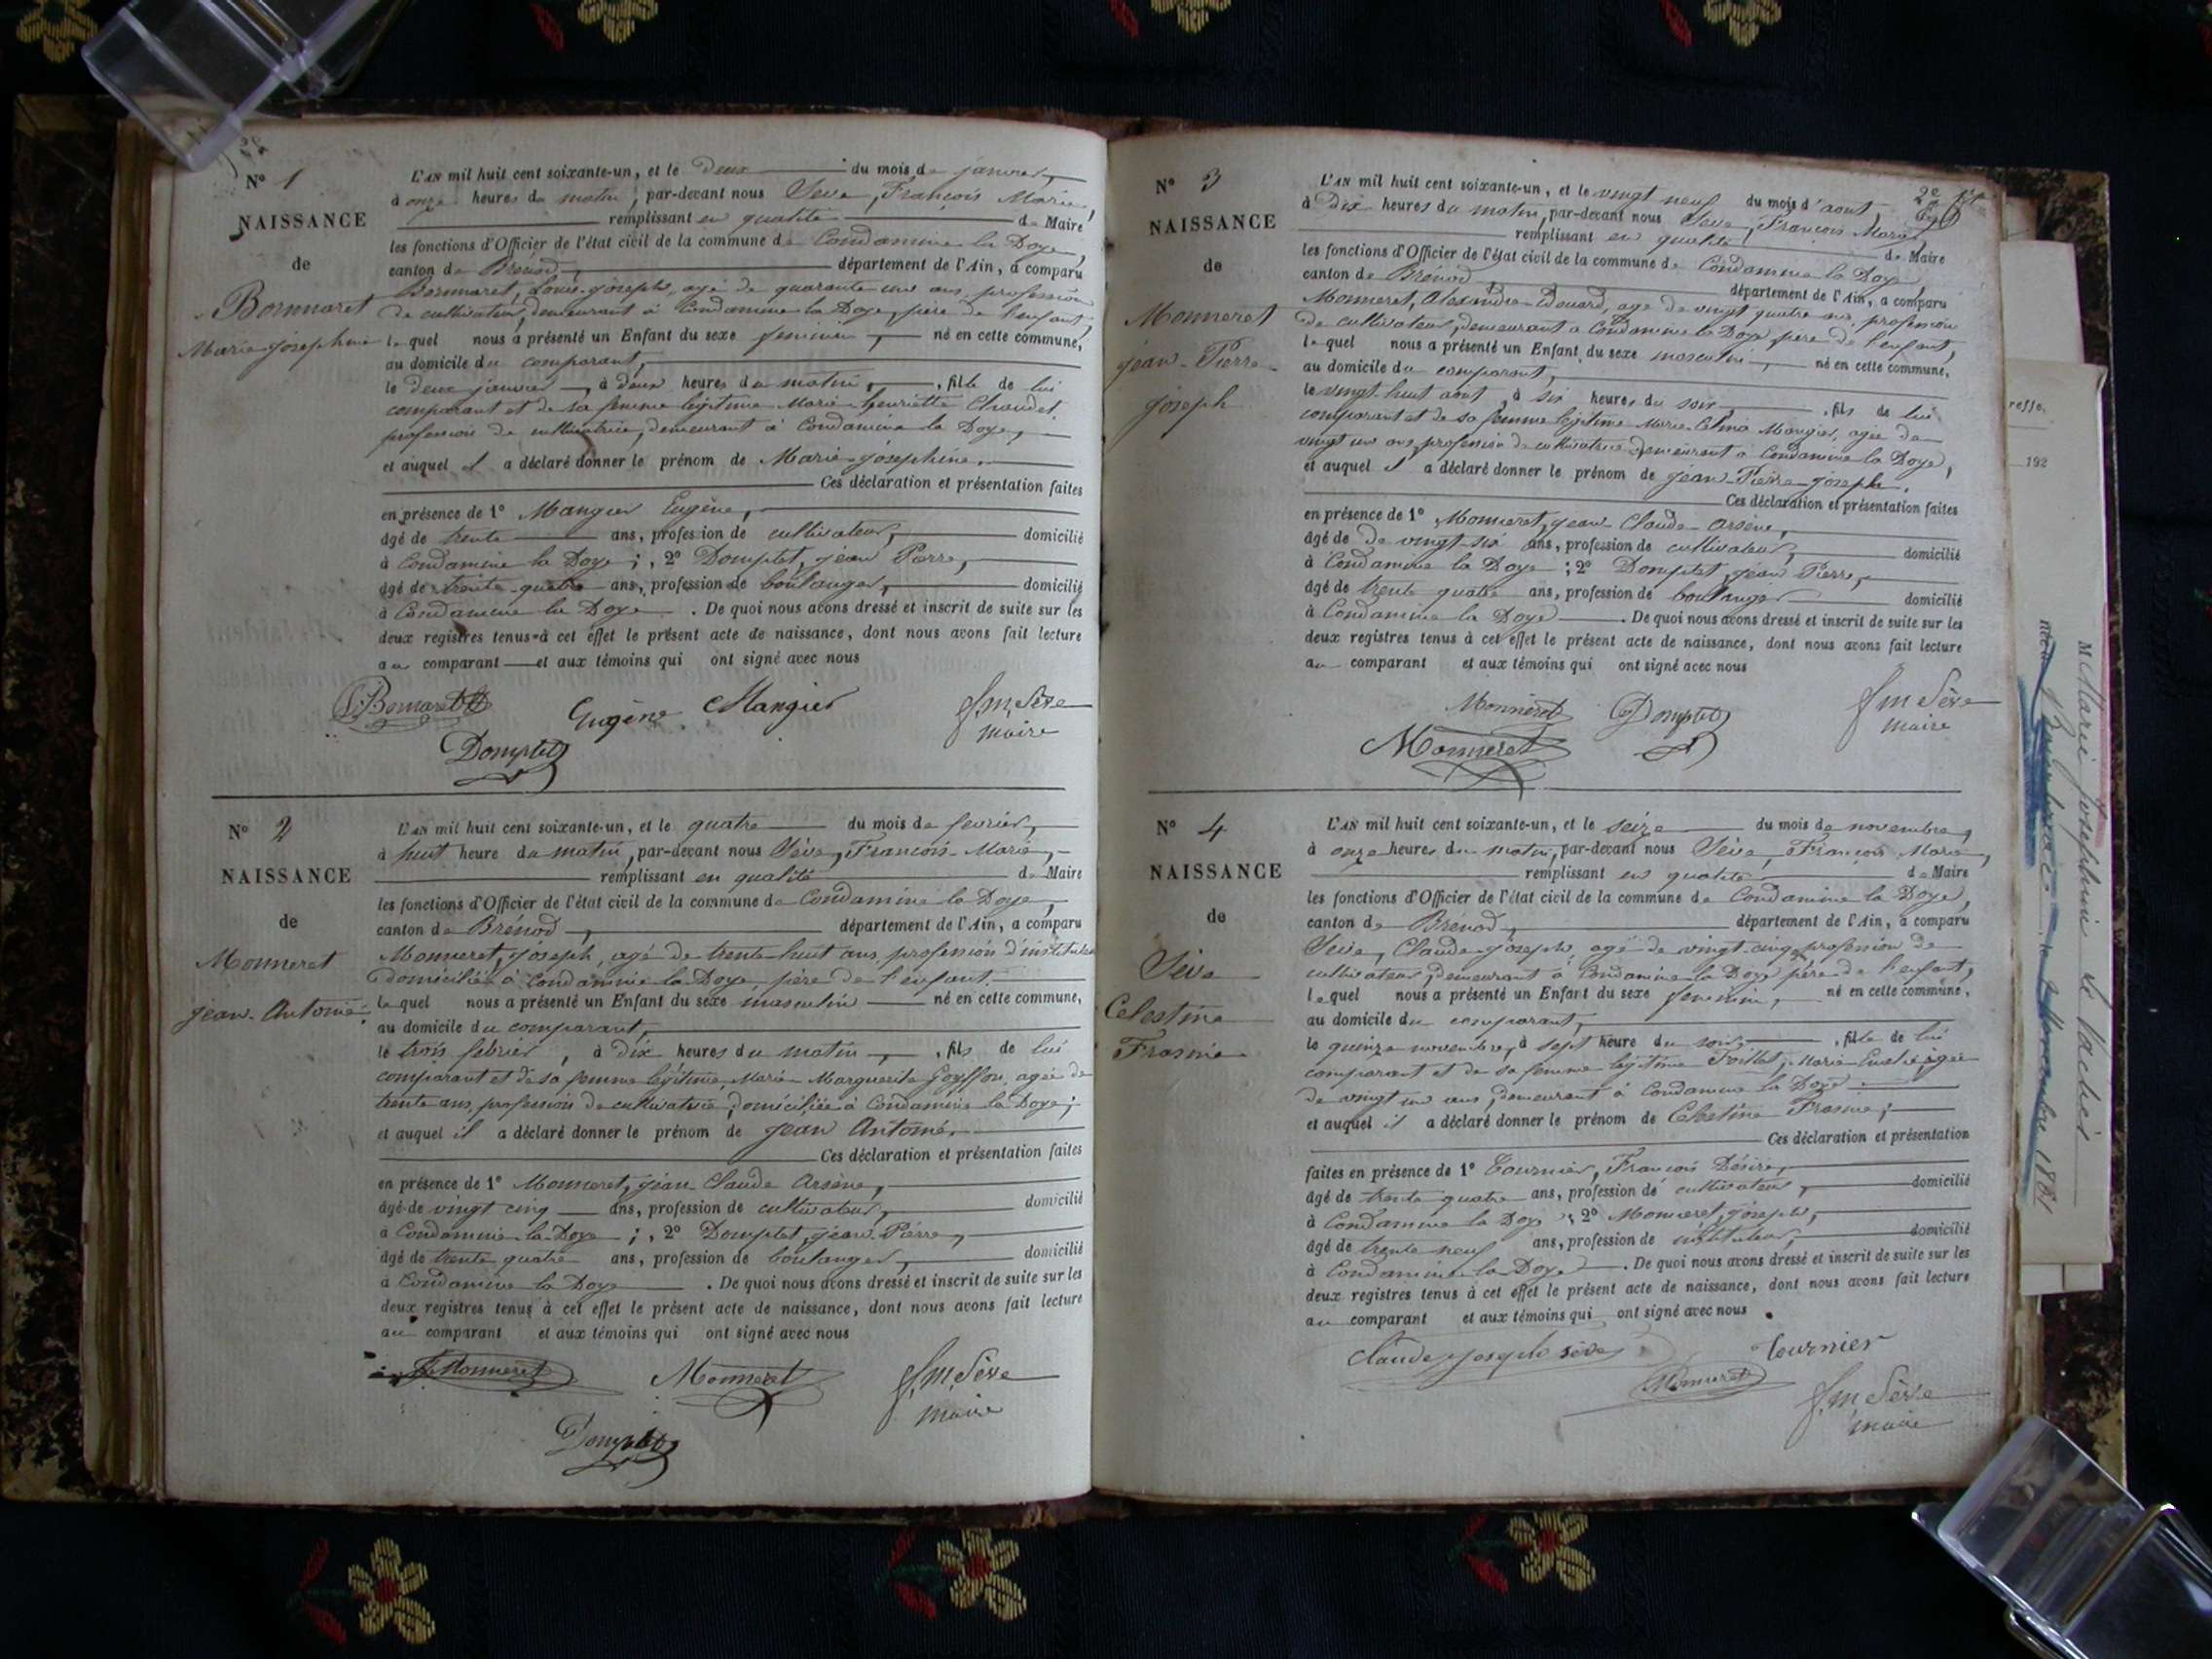 N° 1
NAISSANCE
de
Bornnaret
Marie-josephine
L'AN mil huit cent soixante-un, et le deux du mois de janvier,
à onze heures du matin, par-devant nous Sève, François Marie,
remplissant en qualité de Maire
les fonctions d'Officier de l'état civil de la commune de Condamine la Doye,
canton de Brénod, département de l'Ain, a comparu
Bornnaret, Louis-joseph, agé de quarante un ans, profession
de cultivateur, demeurant à Condamine la Doye, père de l'enfant,
lequel nous a présenté un Enfant du sexe feminin, né en cette commune,
au domicile du comparant,
le deux janvier, à deux heures du matin, fille de lui
comparant et de sa femme légitime Marie-henriette Chaudet,
profession de cultivatrice, demeurant à Condamine la Doye,
et auquel il a déclaré donner le prénom de Marie-joséphine.
Ces déclaration et présentation faites
en présence de 1° Mangier Eugène,
âgé de trente ans, profession de cultivateur, domicilié
à Condamine la Doye ; 2° Domptet, jean Pierre,
âgé de trente-quatre ans, profession de boulanger, domicilié
à Condamine la Doye. De quoi nous avons dressé et inscrit de suite sur les
deux registres tenus à cet effet le présent acte de naissance, dont nous avons fait lecture
au comparant et aux témoins qui ont signé avec nous
Eugène Mangier
f. m. Sève
maire
Domptet
N° 2
NAISSANCE
de
Monneret
jean-Antoine
L'AN mil huit cent soixante-un, et le quatre du mois de fevrier,
à huit heure du matin, par-devant nous Sève, François-Marie,
remplissant en qualité de Maire
les fonctions d'Officier de l'état civil de la commune de Condamine la Doye,
canton de Brénod, département de l'Ain, a comparu
Monneret, joseph, agé de trente huit ans, profession d'instituteur
domiciliée à Condamine la Doye, père de l'enfant.
lequel nous a présenté un Enfant du sexe masculin né en cette commune,
au domicile du comparant,
le trois febrier, à dix heures du matin, fils de lui
comparant et de sa femme légitime, Marie-Marguerite Goyffon, agée de
trente ans, profession de cultivatrice, domiciliée à Condamine la Doye;
et auquel il a déclaré donner le prénom de jean Antoine.
Ces déclaration et présentation faites
en présence de 1° Monneret, jean Claude Arsène,
âgé de vingt cinq ans, profession de cultivateur, domicilié
à Condamine la Doye ; 2° Domptet, jean-Pierre,
âgé de trente quatre ans, profession de boulanger, domicilié
à Condamine la Doye. De quoi nous avons dressé et inscrit de suite sur les
deux registres tenus à cet effet le présent acte de naissance, dont nous avons fait lecture
au comparant et aux témoins qui ont signé avec nous
Monneret Monneret
f. m. Sève
maire
Domptet
N° 3
NAISSANCE
de
Monneret
jean-Pierre-
joseph
L'AN mil huit cent soixante-un, et le vingt neuf du mois d'aout,
à Dix heures du matin, par-devant nous Sève, François Marie
remplissant en qualité de Maire
les fonctions d'Officier de l'état civil de la commune de Condamine la Doye,
canton de Brénod département de l'Ain, a comparu
Monneret, Alexandre-Edouard, age de vingt quatre ans, profession
de cultivateur, demeurant à Condamine la Doye père de l'enfant,
lequel nous a présenté un Enfant du sexe masculin, né en cette commune,
au domicile du comparant,
le vingt-huit aout, à six heures du soir, fils de lui
comparant et de sa femme légitime Marie-Célina Mangier, agée de
vingt un ans, profession de cultivatrice demeurant à Condamine la Doye,
et auquel il a déclaré donner le prénom de jean-Pierre-joseph.
Ces déclaration et présentation faites
en présence de 1° Monneret, jean Claude-Arsène,
âgé de de vingt-six ans, profession de cultivateur, domicilié
à Condamine la Doye ; 2° Domptet, jean Pierre,
âgé de trente quatre ans, profession de boulanger domicilié
à Condamine la Doye. De quoi nous avons dressé et inscrit de suite sur les
deux registres tenus à cet effet le présent acte de naissance, dont nous avons fait lecture
au comparant et aux témoins qui ont signé avec nous
Monneret Domptet
f m Sève
maire
Monneret
N° 4
NAISSANCE
de
Sève
Celestine
Frasnie
L'AN mil huit cent soixante-un, et le seize du mois de novembre,
à onze heures du matin, par-devant nous Sève, François Marie,
remplissant en qualité de Maire
les fonctions d'Officier de l'état civil de la commune de Condamine la Doye,
canton de Brénod, département de l'Ain, a comparu
Sève, Claude-joseph, agé de vingt-cinq, profession de
cultivateur, demeurant à Condamine la Doye père de l'enfant,
lequel nous a présenté un Enfant du sexe feminin, né en cette commune,
au domicile du comparant,
le quinze novembre, à sept heure du soir, fille de lui
comparant et de sa femme légitime Marie agée
de vingt un ans, demeurant à Condamine la Doye.
et auquel il a déclaré donner le prénom de Celestine Frasnie;
Ces déclaration et présentation
faites en présence de 1° Tournier, François Désiré,
âgé de trente quatre ans, profession de cultivateur, domicilié
à Condamine la Doye ; 2° Monneret, joseph,
âgé de trente neuf ans, profession de instituteur, domicilié
à Condamine la Doye. De quoi nous avons dressé et inscrit de suite sur les
deux registres tenus à cet effet le présent acte de naissance, dont nous avons fait lecture
au comparant et aux témoins qui ont signé avec nous
Claude joseph sève
Tournier
Monneret
f. m Sève
maire
reffe.
192
M Marie josephine
novembre 1861